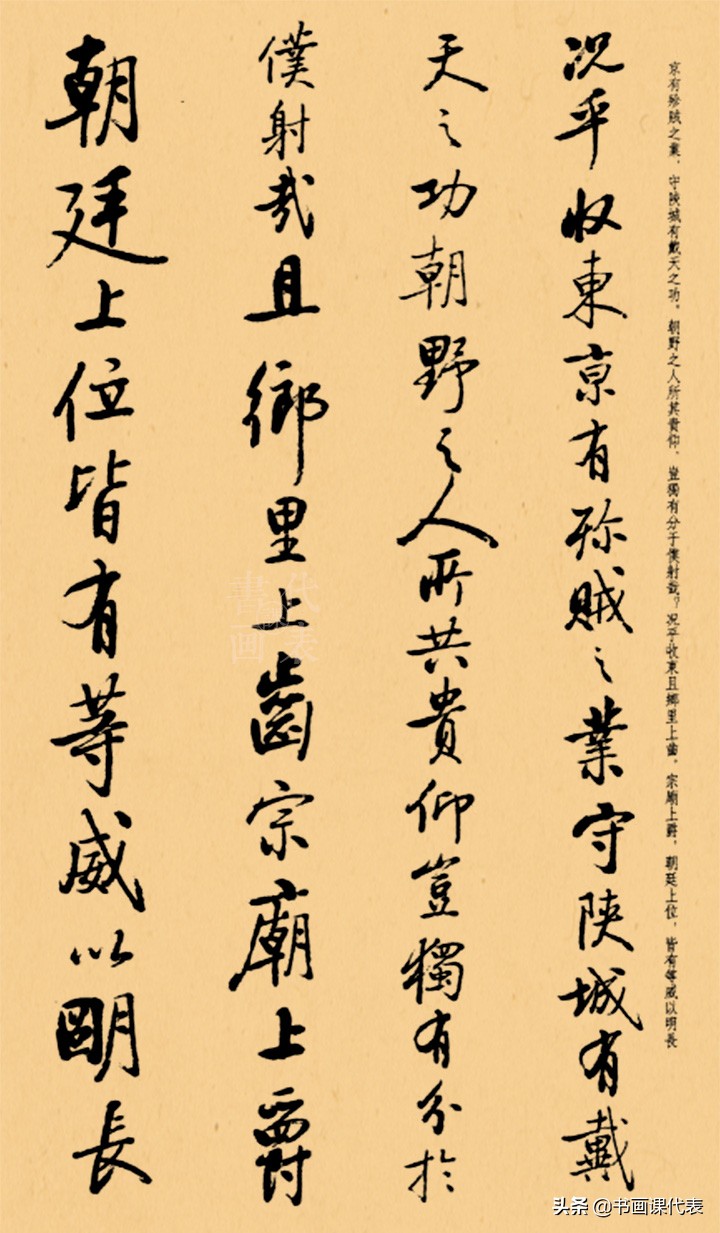 京有殄賊之業，守陝城有戴天之功，朝野之人所其貴仰，豈獨有分于僕射哉？况乎收東且鄉里上齒，宗廟上爵，朝廷上位，皆有等威以明長
况乎收東京有殄賊之業守陝城有戴
天之功朝野之人所共貴仰豈獨有分於
僕射哉且鄉里上齒宗廟上爵
朝廷上位皆有等威以明長
書画
代表
头条 @书画课代表